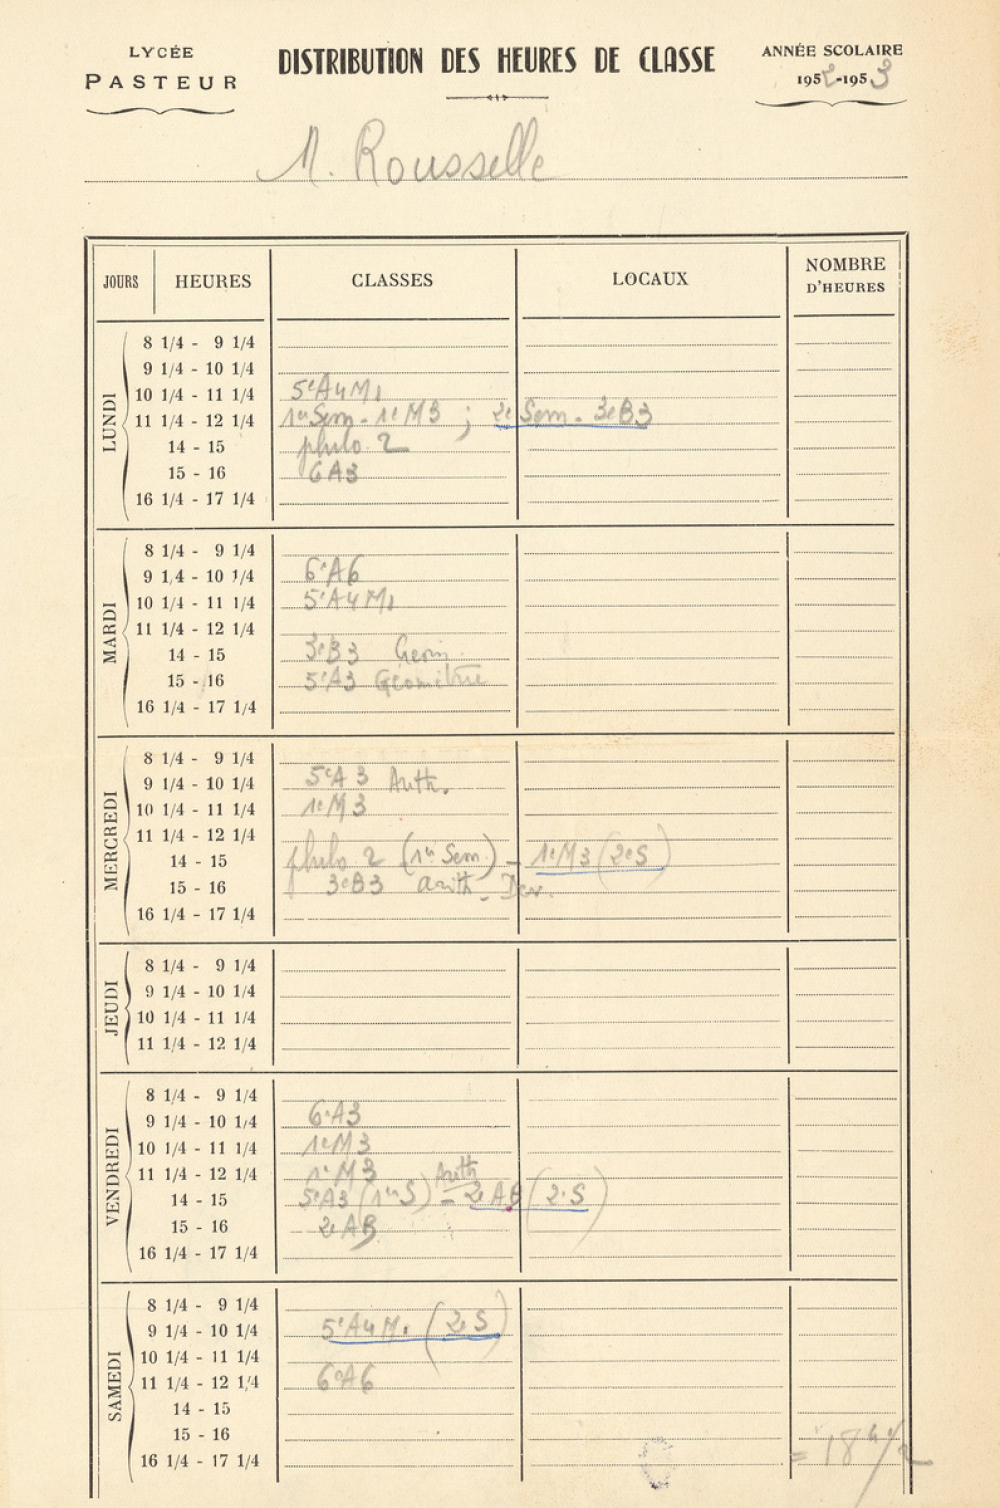 LYCÉE
PASTEUR
DISTRIBUTION DES HEURES DE CLASSE
ANNÉE SCOLAIRE
1952-1953
M. Rousselle
JOURS HEURES CLASSES LOCAUX NOMBRE D'HEURES
LUNDI
8 1/4 - 9 1/4
9 1/4 - 10 1/4
10 1/4 - 11 1/4 5eA4M1
11 1/4 - 12 1/4 1er Sem - 1e M3 ; 2e Sem - 3eB3
14 - 15 philo 2
15 - 16 6A3
16 1/4 - 17 1/4
MARDI
8 1/4 - 9 1/4
9 1/4 - 10 1/4 6eA6
10 1/4 - 11 1/4 5eA4M1
11 1/4 - 12 1/4
14 - 15 3eB3 Geom.
15 - 16 5eA3 Géométrie
16 1/4 - 17 1/4
MERCREDI
8 1/4 - 9 1/4
9 1/4 - 10 1/4 5eA3 Arith.
10 1/4 - 11 1/4 1eM3
11 1/4 - 12 1/4
14 - 15 philo 2 (1er Sem) - 1eM3 (2eS)
15 - 16 3eB3 arith - Dev.
16 1/4 - 17 1/4
JEUDI
8 1/4 - 9 1/4
9 1/4 - 10 1/4
10 1/4 - 11 1/4
11 1/4 - 12 1/4
VENDREDI
8 1/4 - 9 1/4
9 1/4 - 10 1/4 6eA3
10 1/4 - 11 1/4 1eM3
11 1/4 - 12 1/4 1eM3
14 - 15 5eA3 (1er S) Arith - 2eAB (2eS)
15 - 16 2eAB
16 1/4 - 17 1/4
SAMEDI
8 1/4 - 9 1/4
9 1/4 - 10 1/4 5eA4M1 (2eS)
10 1/4 - 11 1/4
11 1/4 - 12 1/4 6eA6
14 - 15
15 - 16
16 1/4 - 17 1/4 = 18 h 1/2